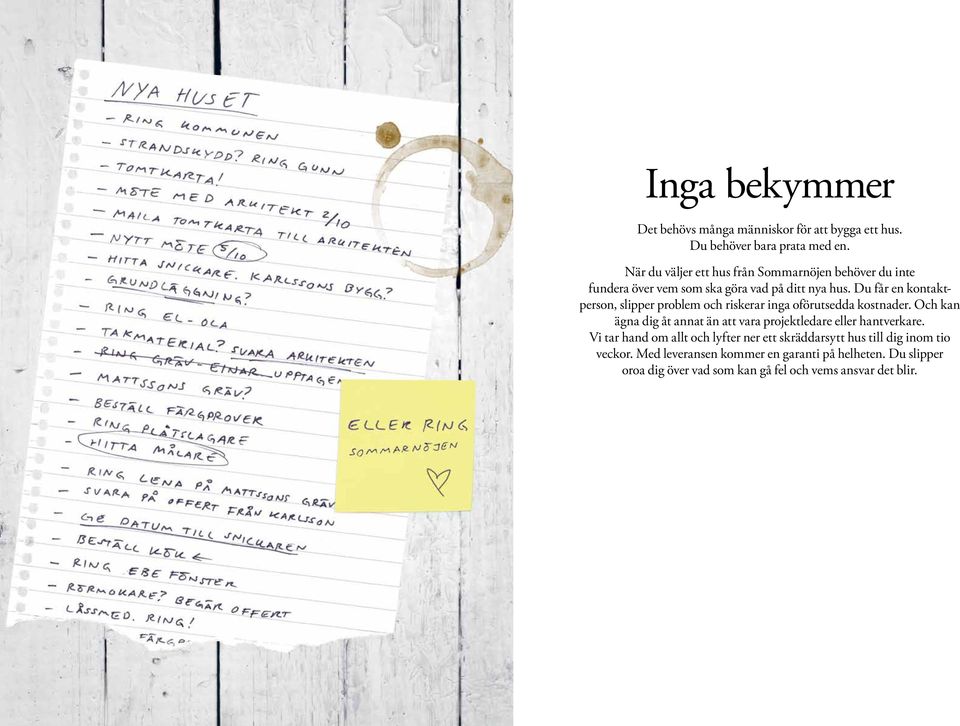 NYA HUSET
- RING KOMMUNEN
- STRANDSKYDD? RING GUNN
- TOMTKARTA!
- MÖTE MED ARKITEKT 2/10
- MAILA TOMTKARTA TILL ARKITEKTEN
- NYTT MÖTE 5/10
- HITTA SNICKARE. KARLSSONS BYGG?
- GRUNDLÄGGNING?
- RING EL-OLA
- TAKMATERIAL? SVARA ARKITEKTEN
- RING GRÄV-EINAR UPPTAGEN
- MATTSSONS GRÄV?
- BESTÄLL FÄRGPROVER
- RING PLÅTSLAGARE
- HITTA MÅLARE
- RING LENA PÅ MATTSSONS GRÄV
- SVARA PÅ OFFERT FRÅN KARLSSON
- GE DATUM TILL SNICKAREN
- BESTÄLL KÖK ←
- RING EBE FÖNSTER
- RÖRMOKARE? BEGÄR OFFERT
- LÅSSMED. RING!
ELLER RING
SOMMARNÖJEN
Inga bekymmer
Det behövs många människor för att bygga ett hus.
Du behöver bara prata med en.
När du väljer ett hus från Sommarnöjen behöver du inte
fundera över vem som ska göra vad på ditt nya hus. Du får en kontakt-
person, slipper problem och riskerar inga oförutsedda kostnader. Och kan
ägna dig åt annat än att vara projektledare eller hantverkare.
Vi tar hand om allt och lyfter ner ett skräddarsytt hus till dig inom tio
veckor. Med leveransen kommer en garanti på helheten. Du slipper
oroa dig över vad som kan gå fel och vems ansvar det blir.